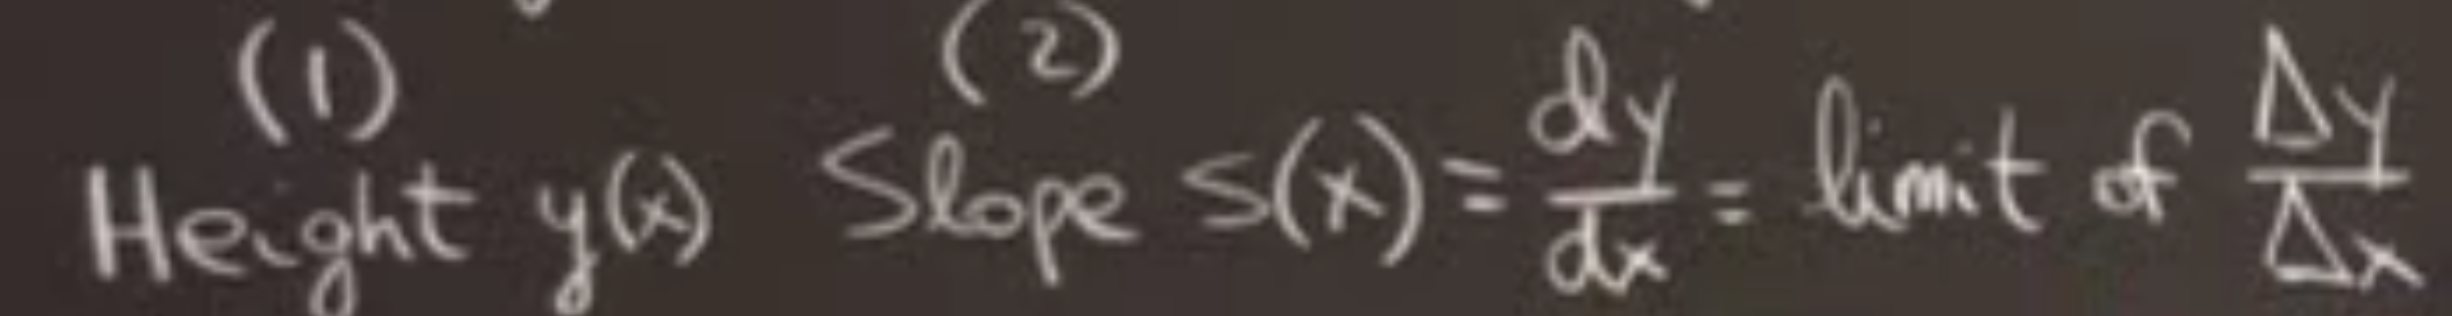 (1) (2)
Height y(x) Slope s(x) = dy/dx = limit of Δy/Δx